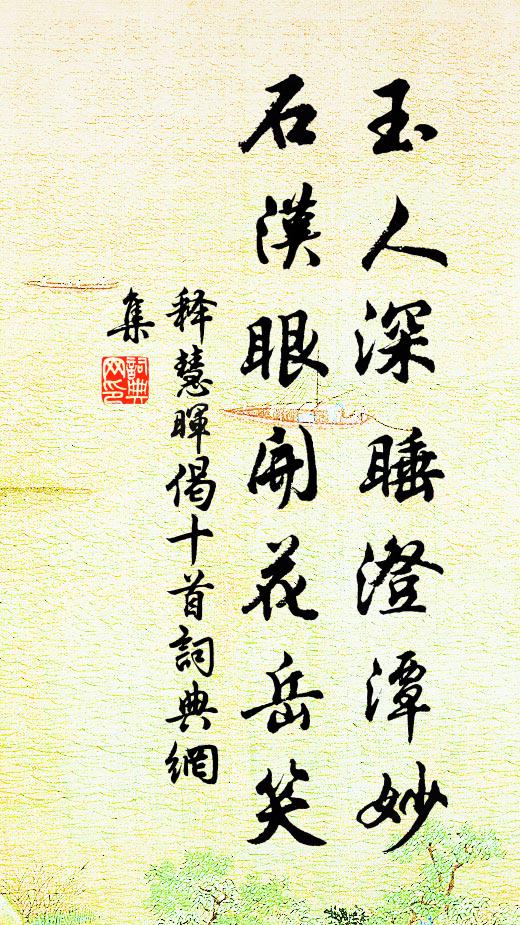 玉人深睡澄潭妙
石漢眼開花岳笑
释慧暉偈十首詞典網
集
詞典
网印